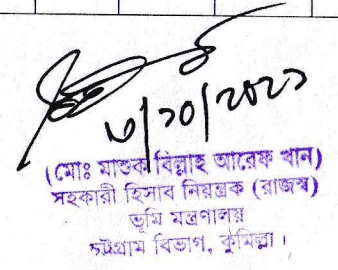 ৩/১০/২০২১
(মোঃ মাশুক বিল্লাহ আরেফ খান)
সহকারী হিসাব নিয়ন্ত্রক (রাজস্ব)
ভূমি মন্ত্রণালয়
চট্টগ্রাম বিভাগ, কুমিল্লা।